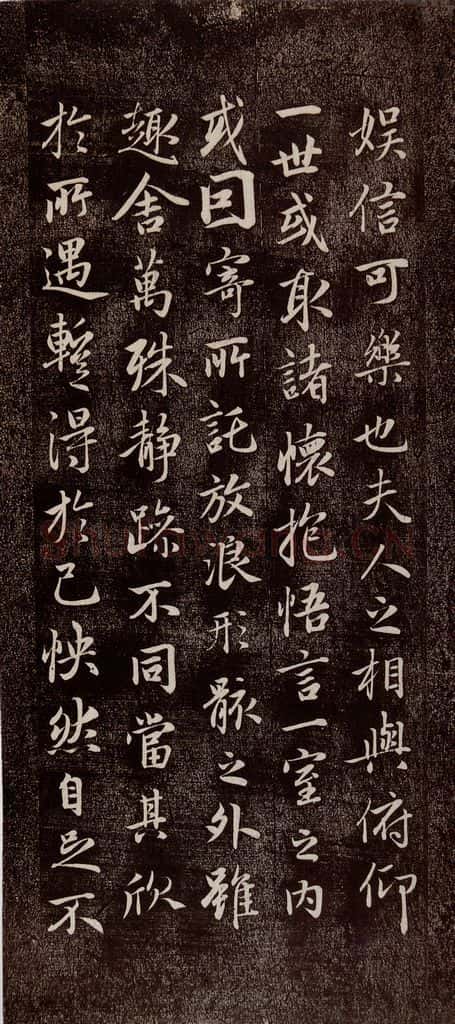 娱信可樂也夫人之相與俯仰
一世或取諸懷抱悟言一室之内
或因寄所託放浪形骸之外雖
趣舍萬殊静躁不同當其欣
於所遇暫得於己怏然自足不